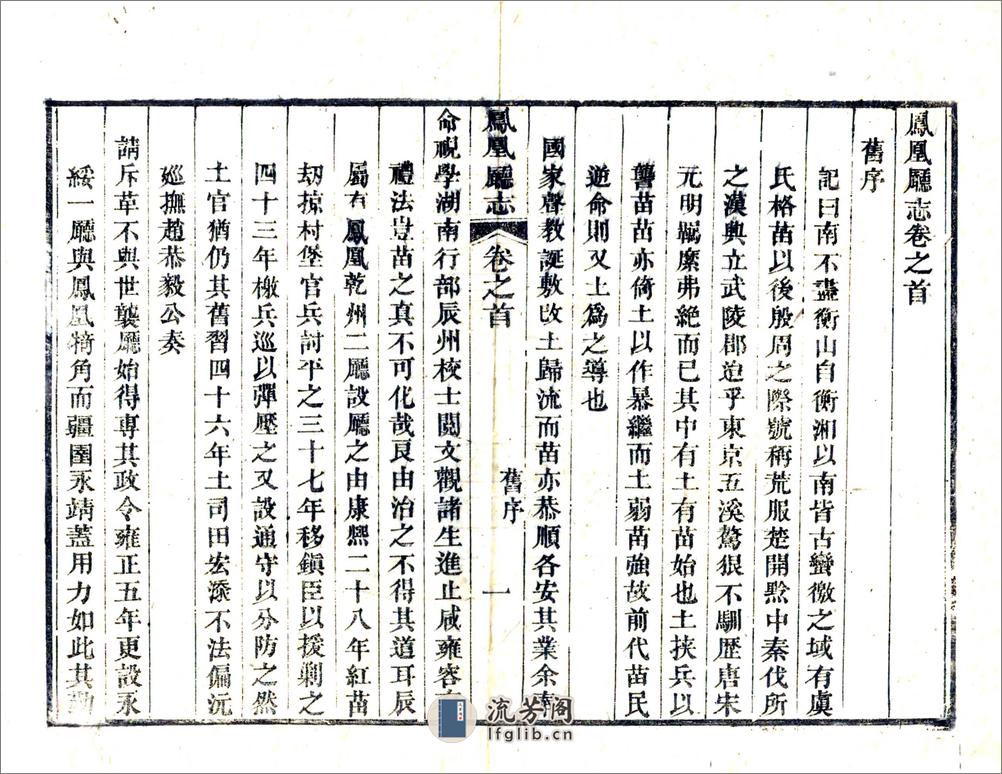 鳳凰廳志卷之首
舊序
記曰南不盡衡山自衡湘以南皆古蠻徼之域有虞
氏格苗以後殷周之際號稱荒服楚開黔中秦伐所
之漢興立武陵郡迨乎東京五溪驁狠不馴歷唐宋
元明羈縻弗絕而已其中有土有苗始也土挾兵以
讋苗苗亦倚土以作暴繼而土弱苗強故前代苗民
逆命則又土爲之導也
國家聲教誕敷改土歸流而苗亦恭順各安其業余奉
鳳凰廳志
卷之首
舊序
一
命視學湖南行部辰州校士閱文觀諸生進止咸雍容
禮法豈苗之真不可化哉良由治之不得其道耳辰
屬有鳳凰乾州二廳設廳之由康熙二十八年紅苗
刧掠村堡官兵討平之三十七年移鎮臣以援剿之
四十三年檄兵巡以彈壓之又設通守以分防之然
土官猶仍其舊習四十六年土司田宏添不法偏沅
廵撫趙恭毅公奏
請斥革不與世襲廳始得專其政令雍正五年更設永
綏一廳與鳳凰犄角而疆圉永靖蓋用力如此其
流芳阁
lfglib.cn